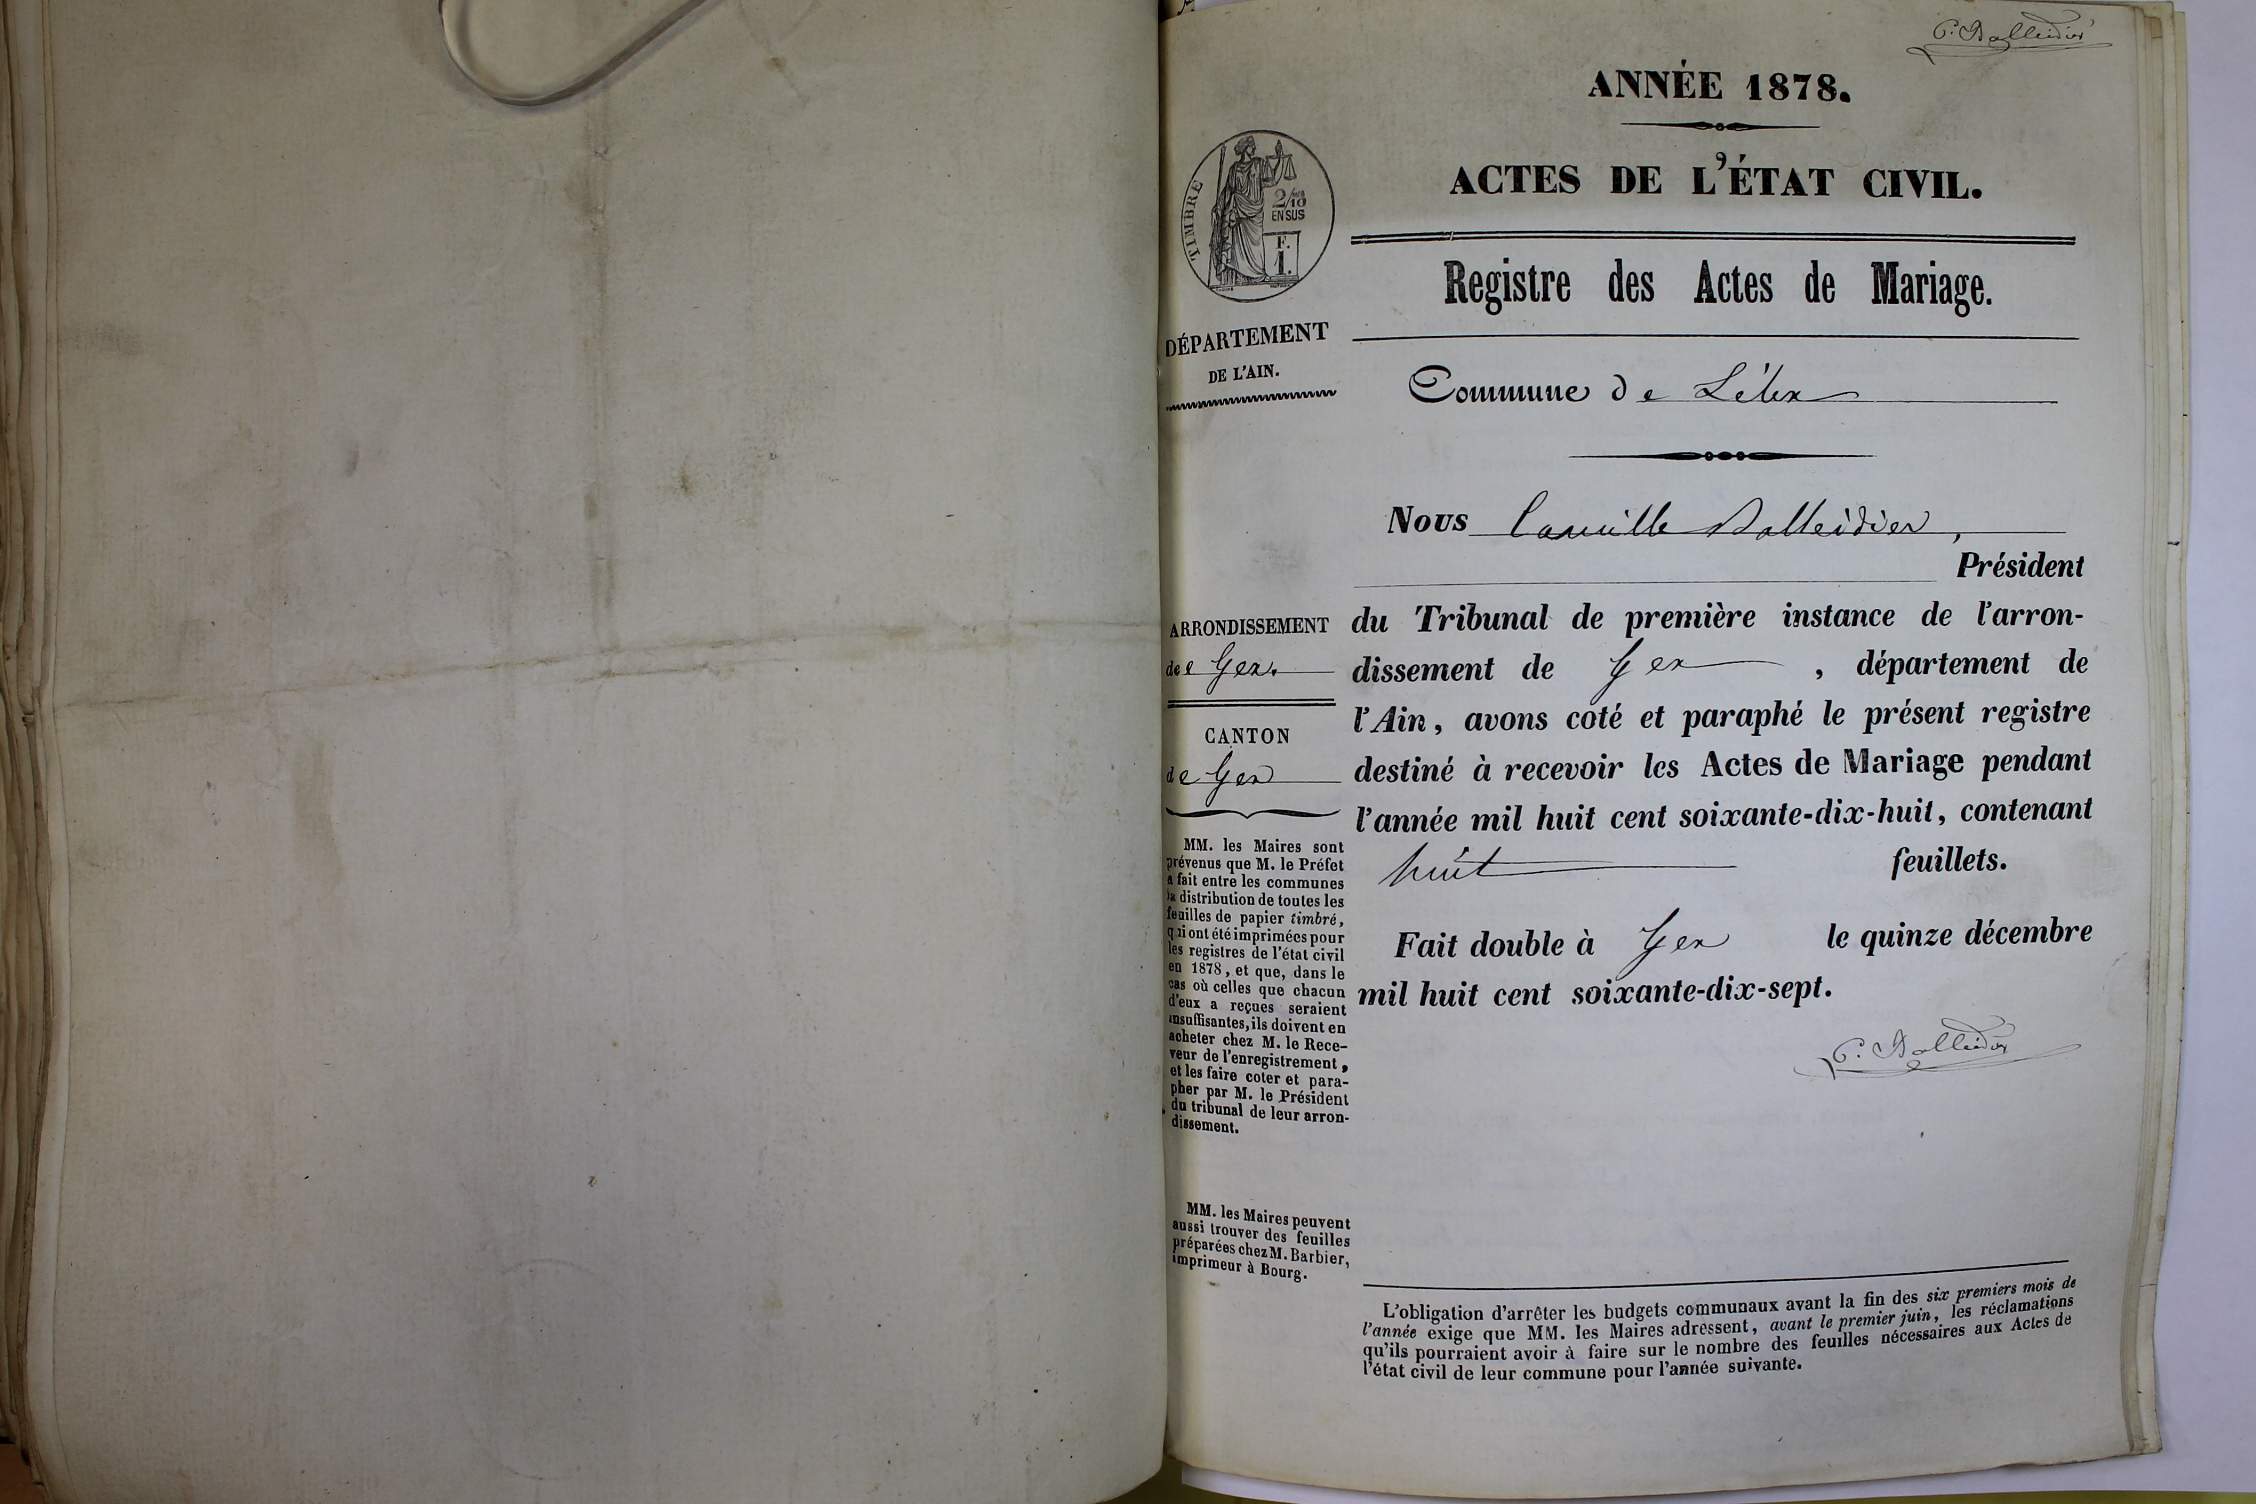 C. Balleidier
ANNÉE 1878.
ACTES DE L'ÉTAT CIVIL.
TIMBRE
2/10
EN SUS
F.
1.
Registre des Actes de Mariage.
DÉPARTEMENT
DE L'AIN.
Commune de Lélex
Nous Camille Balleidier,
Président
ARRONDISSEMENT
de Gex.
CANTON
de Gex
du Tribunal de première instance de l'arron-
dissement de Gex, département de
l'Ain, avons coté et paraphé le présent registre
destiné à recevoir les Actes de Mariage pendant
l'année mil huit cent soixante-dix-huit, contenant
huit feuillets.
Fait double à Gex le quinze décembre
mil huit cent soixante-dix-sept.
C. Balleidier
MM. les Maires sont
prévenus que M. le Préfet
a fait entre les communes
la distribution de toutes les
feuilles de papier timbré,
qui ont été imprimées pour
les registres de l'état civil
en 1878, et que, dans le
cas où celles que chacun
d'eux a reçues seraient
insuffisantes, ils doivent en
acheter chez M. le Rece-
veur de l'enregistrement,
et les faire coter et para-
pher par M. le Président
du tribunal de leur arron-
dissement.
MM. les Maires peuvent
aussi trouver des feuilles
préparées chez M. Barbier,
imprimeur à Bourg.
L'obligation d'arrêter les budgets communaux avant la fin des six premiers mois de
l'année exige que MM. les Maires adressent, avant le premier juin, les réclamations
qu'ils pourraient avoir à faire sur le nombre des feuilles nécessaires aux Actes de
l'état civil de leur commune pour l'année suivante.